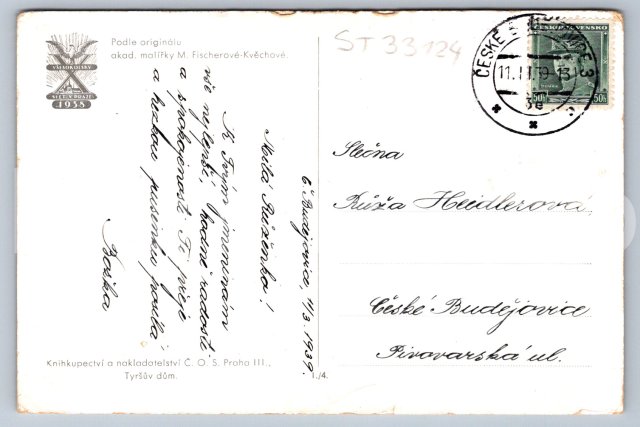 VŠESOKOLSKÝ
X
SLET V PRAZE
1938
Podle originálu
akad. malířky M. Fischerové-Kvěchové.
ST 33124
ČESKÉ BUDĚJOVICE 3
11.III.39-13
3e
ČESKOSLOVENSKO
50h 50h
Č. Budějovice, 11/3. 1939.
Milá Růženko!
K Tvým jmeninám
vše nejlepší, hodně radosti
a spokojenosti Ti přeje
a hezkou pusinku posílá
Boška
Slečna
Růža Heidlerová,
České Budějovice
Pivovarská ul.
Knihkupectví a nakladatelství Č. O. S. Praha III.,
Tyršův dům.
1./4.